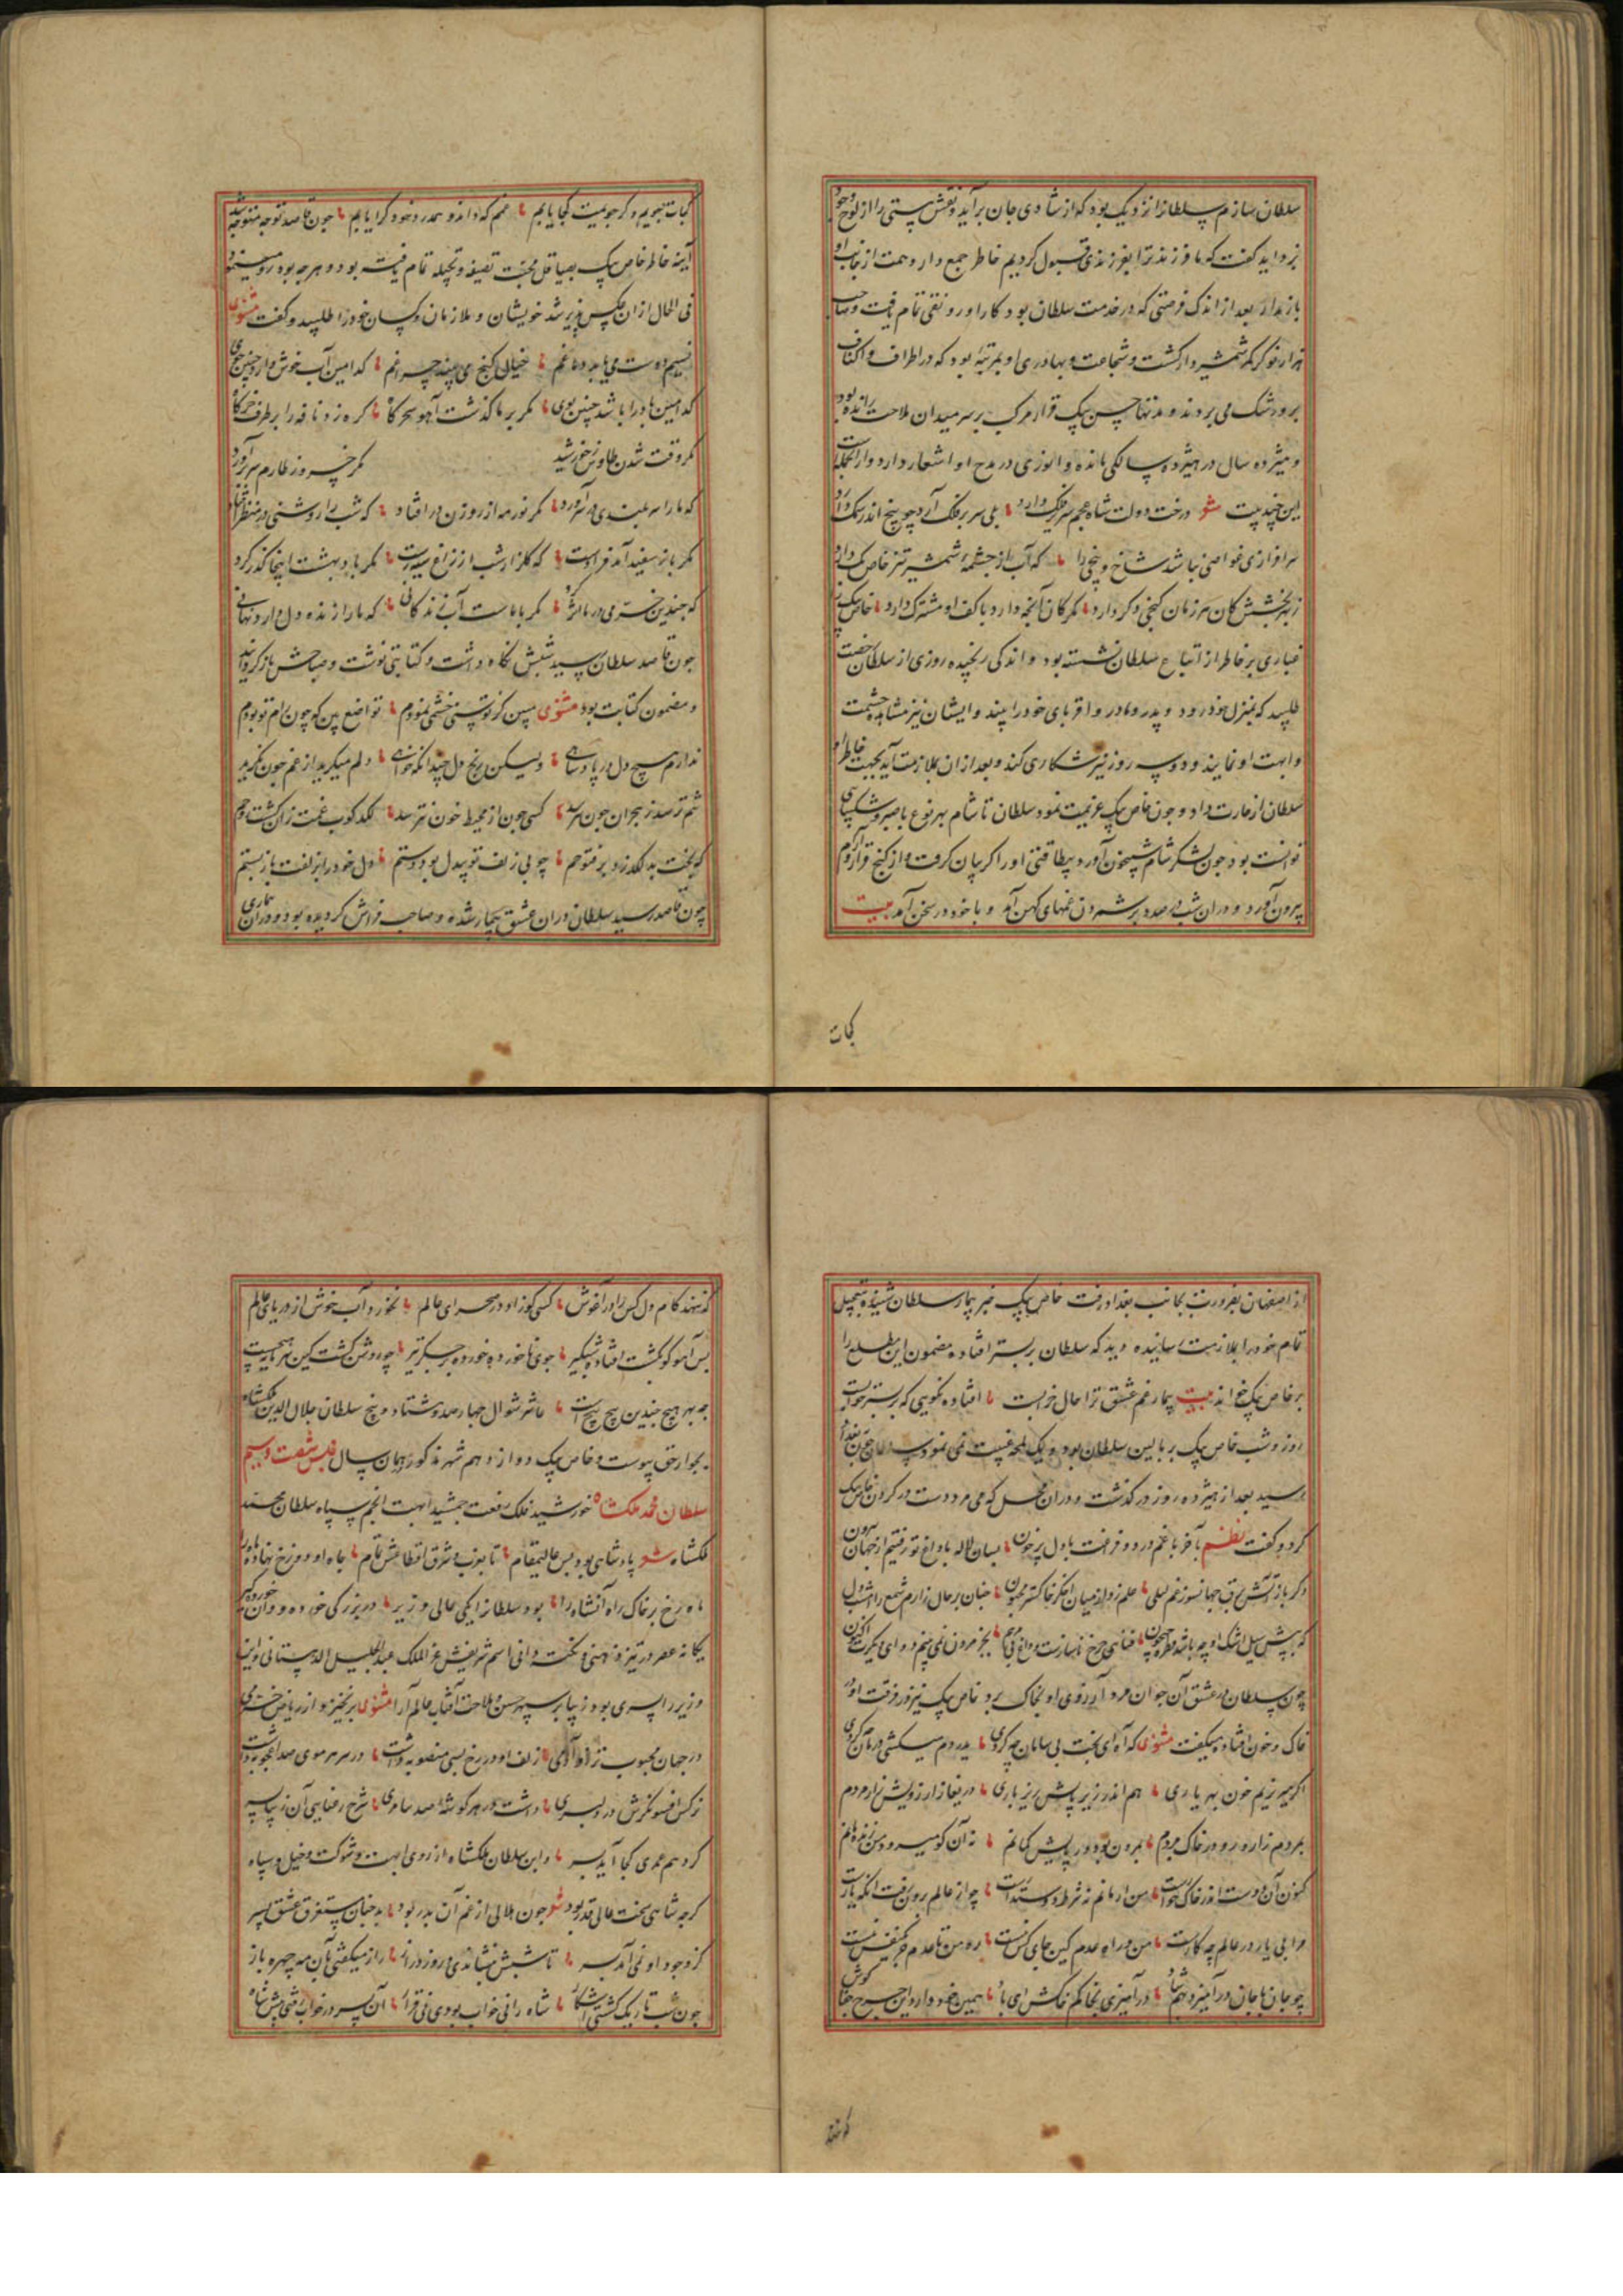 سلطان سازم سلطانرا نزدیک بود که از شادی جان برآید و نقش هستی را از لوح وجود
بزداید گفت که ما فرزند ترا بفرزندی قبول کردیم خاطر جمع دار و همت از جانب او
باز مدار بعد از اندک فرصتی که در خدمت سلطان بود کار او رونقی تمام یافت و صاحب
هزار نوکر کمر شمشیر دار گشت و شجاعت و بهادری او بمرتبهٔ بود که در اطراف و اکناف
برو رشک می بردند و نه تنها حسن بیک قرار مرکب بر سر میدان ملاحت رانده بود
و هیژده سال در هیژده سالگی مانده و انوری در مدح او اشعار دارد و از انجمله است
این چند بیت مثنوی درخت دولت شاه عجم سر بر فلک دارد بلی سر بر فلک آرد چو بیخ اندر سمک دارد
سرافرازی غواصی نباشد شاخ و بیخی را که آب از چشمهٔ شمشیر تیز خاص بک دارد
ز بهر بخشش کان هر زمان گنجی دگر دارد مگر کان آنچه دارد با کف او مشترک دارد خاص بیک
غباری بر خاطر از اتباع سلطان نشسته بود و اندکی رنجیده روزی از سلطان رخصت
طلبید که بمنزل خود رود و پدر و مادر و اقربای خود را بیند و ایشان نیز مشاهده حشمت
و ابهت او نمایند و دو سه روز نیز شکاری کند و بعد از ان بملازمت آید بجهت خاطر او
سلطان از جا رخت داد و چون خاص بیک عزیمت نمود سلطان تا شام بهر نوع با صبر و شکیبایی
توانست بود چون لشکر شام شبیخون آورد بیطاقتی او را گریبان گرفت و از کنج قرار و آرام
بیرون آورد و دران شب در صدد برشمردن غمهای کهن آمد و با خود در سخن آمد بیت
کجات
کجات بجویم و گر جویمت کجا یابم غمم که داند و همدرد خود کرا یابم چون قاصد توجه متوجه شد
آینه خاطر خاص بیک بصیاقل محبت تصفیه و تجلیه تمام یافته بود و هر چه بود رو مینمود
فی الحال از ان عکس پذیر شد خویشان و ملازمان و کسان خود را طلبید و گفت مثنوی
نسیم دوست می یابد دماغم خیال گنج می بیند چراغم کدامین آب خوش دارد چنین جوی
کدامین باد را باشد چنین بوی مگر بر ما گذشت آهو سحرگاه گره زد نافه را بر طرف خرگاه
مگر وقت شدن طاوس خورشید مگر خسرو ز طارم سر برآورد
که ما را سر بلندی در سر آورد مگر نور مه از روزن در افتاد که شب را روشنی در منظر افتاد
مگر باز سفید آمد فرا دست که گلزار شب از زاغ سیه رست مگر باد بهشت اینجا گذر کرد
که چندین خرمی در ما اثر کرد مگر با ماست آب زندگانی که ما را زنده دل دارد نهانی
چون قاصد سلطان رسید شبش نگاه داشت و کتابتی نوشت و صباحش باز گردانید
و مضمون کتابت بود مثنوی مبین کز توسنی خشمی نمودم تواضع بین که چون رام تو بودم
ندارم هیچ دل در پادشاهی ولیکن رنج دل چندانکه خواهی دلم میگرید از غم چون نگرید
تنم ترسد ز هجران چون نترسد کسی چون از محیط خون نترسد لگد کوب غمت زان گشت روحم
که بخت بد لگد زد بر فتوحم چو بی زلف تو بیدل بود دستم دل خود را بزلفت باز بستم
چون قاصد رسید سلطان دران عشق بیمار شده و صاحب فراش گردیده بود و دران بیماری
از اصفهان بضرورت بجانب بغداد رفت خاص بیک خبر بیمار سلطان شنیده بتعجیل
تمام خود را بملازمت رسانیده دید که سلطان بر بستر افتاده مضمون این مطلع را
بر خاص بیک خواند بیت بیمار غم عشق ترا حال خرابست افتاده نگویی که بر بستر خوابست
روز و شب خاص بیک بر بالین سلطان بود و یک لمحه غیبت نمی نمود سلطان چون ببغداد
رسید بعد از هیژده روز در گذشت و دران محل که می مرد دست در گردن خاص بیک
کرد و گفت نظم آخر با غم درد و فرقت با دل پر خون بسان لاله با داغ تو رفتیم از جهان بیرون
که پیش سیل اشک او چه باشد قطره جیحون
چون سلطان در عشق آن جوان مرد آرزوی او بخاک برد خاص بیک نیز در فرقت او در
خاک و خون افتاده میگفت مثنوی که آه ای بخت بی سامان چه کردی بدردم میکشی درمان چه کردی
اگر میریزیم خون بهر یاری هم اندر زیر پایش ریز باری دریغا زار زویش زار مردم
بمردم زار و رو در خاک بردم
کنون آن دوست اندر خاک خوارست من ار مانم نه شرط دوستدارست چو از عالم برون رفت آنکه یارست
مرا بی یار در عالم چه کارست من و راه عدم کین جای کس نیست ره من تا عدم جز یک نفس نیست
چو جان با جان در آمیزد بهم شاد در آمیزی بخاکم خاکش ای باد همین خو دارد این چرخ جفا کوش
که نهد کام دل کس را در آغوش کسی کو زاد در صحرای عالم نخورد آب خوش از دریای عالم
بس آهو کو بگشت افتاد شبگیر جوی ناخورده خورده بر جگر تیر چو روشن گشت کین هر هیچ هیچست
چه بهر هیچ چندین پیچ پیچست عاشر شوال چهارصد و هشتاد و پنج سلطان جلال الدین ملکشاه
بجوار حق پیوست و خاص بیک دوازدهم شهر مذکور همان سال مجلس بیست و سیم
سلطان محمد ملکشاه خورشید فلک رفعت جمشید ابهت انجم سپاه سلطان محمد
ملکشاه مثنوی پادشاهی بود بس عالیمقام تا بغرب و شرق اقطاعش تمام
ماه رخ بر خاک راه آن شاه را بود سلطانرا یکی عالی وزیر در بزرگی خورده دان و خورده گیر
یگانه عصر در تیز ذهنی و نکته دانی اسم شریفش عز الملک عبد الجلیل الدهستانی و این
وزیر را پسری بود زیبا بر سپهر حسن و ملاحت آفتاب عالم آرا مثنوی
در جهان محبوب تر زو آدمی زلف او در رخ بسی منصوبه داشت در سر هر موی صد اعجوبه داشت
نرگس افسونگرش در دلبری داشت در هر گوشهٔ صد سامری شرح رعنایی آن زیبا پسر
کردیم عمری کجا آید بسر و این سلطان ملکشاه از روی ابهت و شوکت و خیل و سپاه
گر چه شاهی سخت عالی قدر بود چون هلالی از غم آن بدر بود بد چنان مستغرق عشق پسر
کز وجود او نمی آمد بسر تا شبش بنشاندی روز دراز راز میگفتی بآن مه چهره باز
چون شب تاریک گشتی آشکار شاه را نی خواب بودی نی قرار آن پسر در خواب رفتی پیش شاه